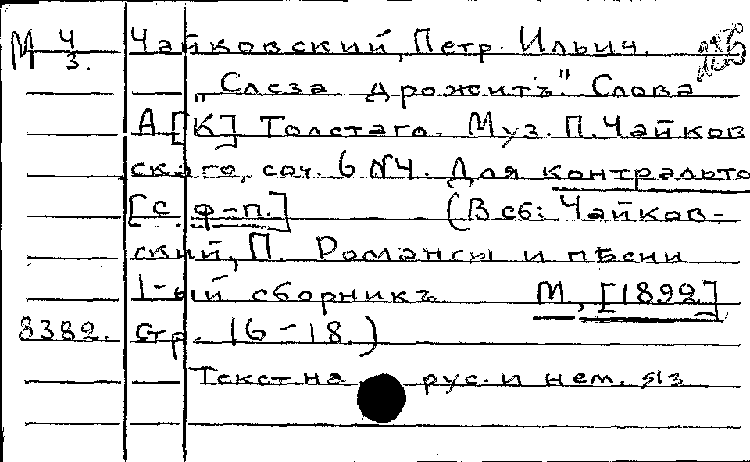 М Ч/3. Чайковский, Петр Ильич.
„Слеза дрожитъ". Слова
А [К] Толстаго. Муз. П. Чайков
скаго, соч. 6 №4. Для контральто
[с ф-п.] (В сб: Чайков-
ский, П. Романсы и пѣсни
1-ый сборникъ М, [1892]
8382. стр. 16-18.)
Текст на рус. и нем. яз